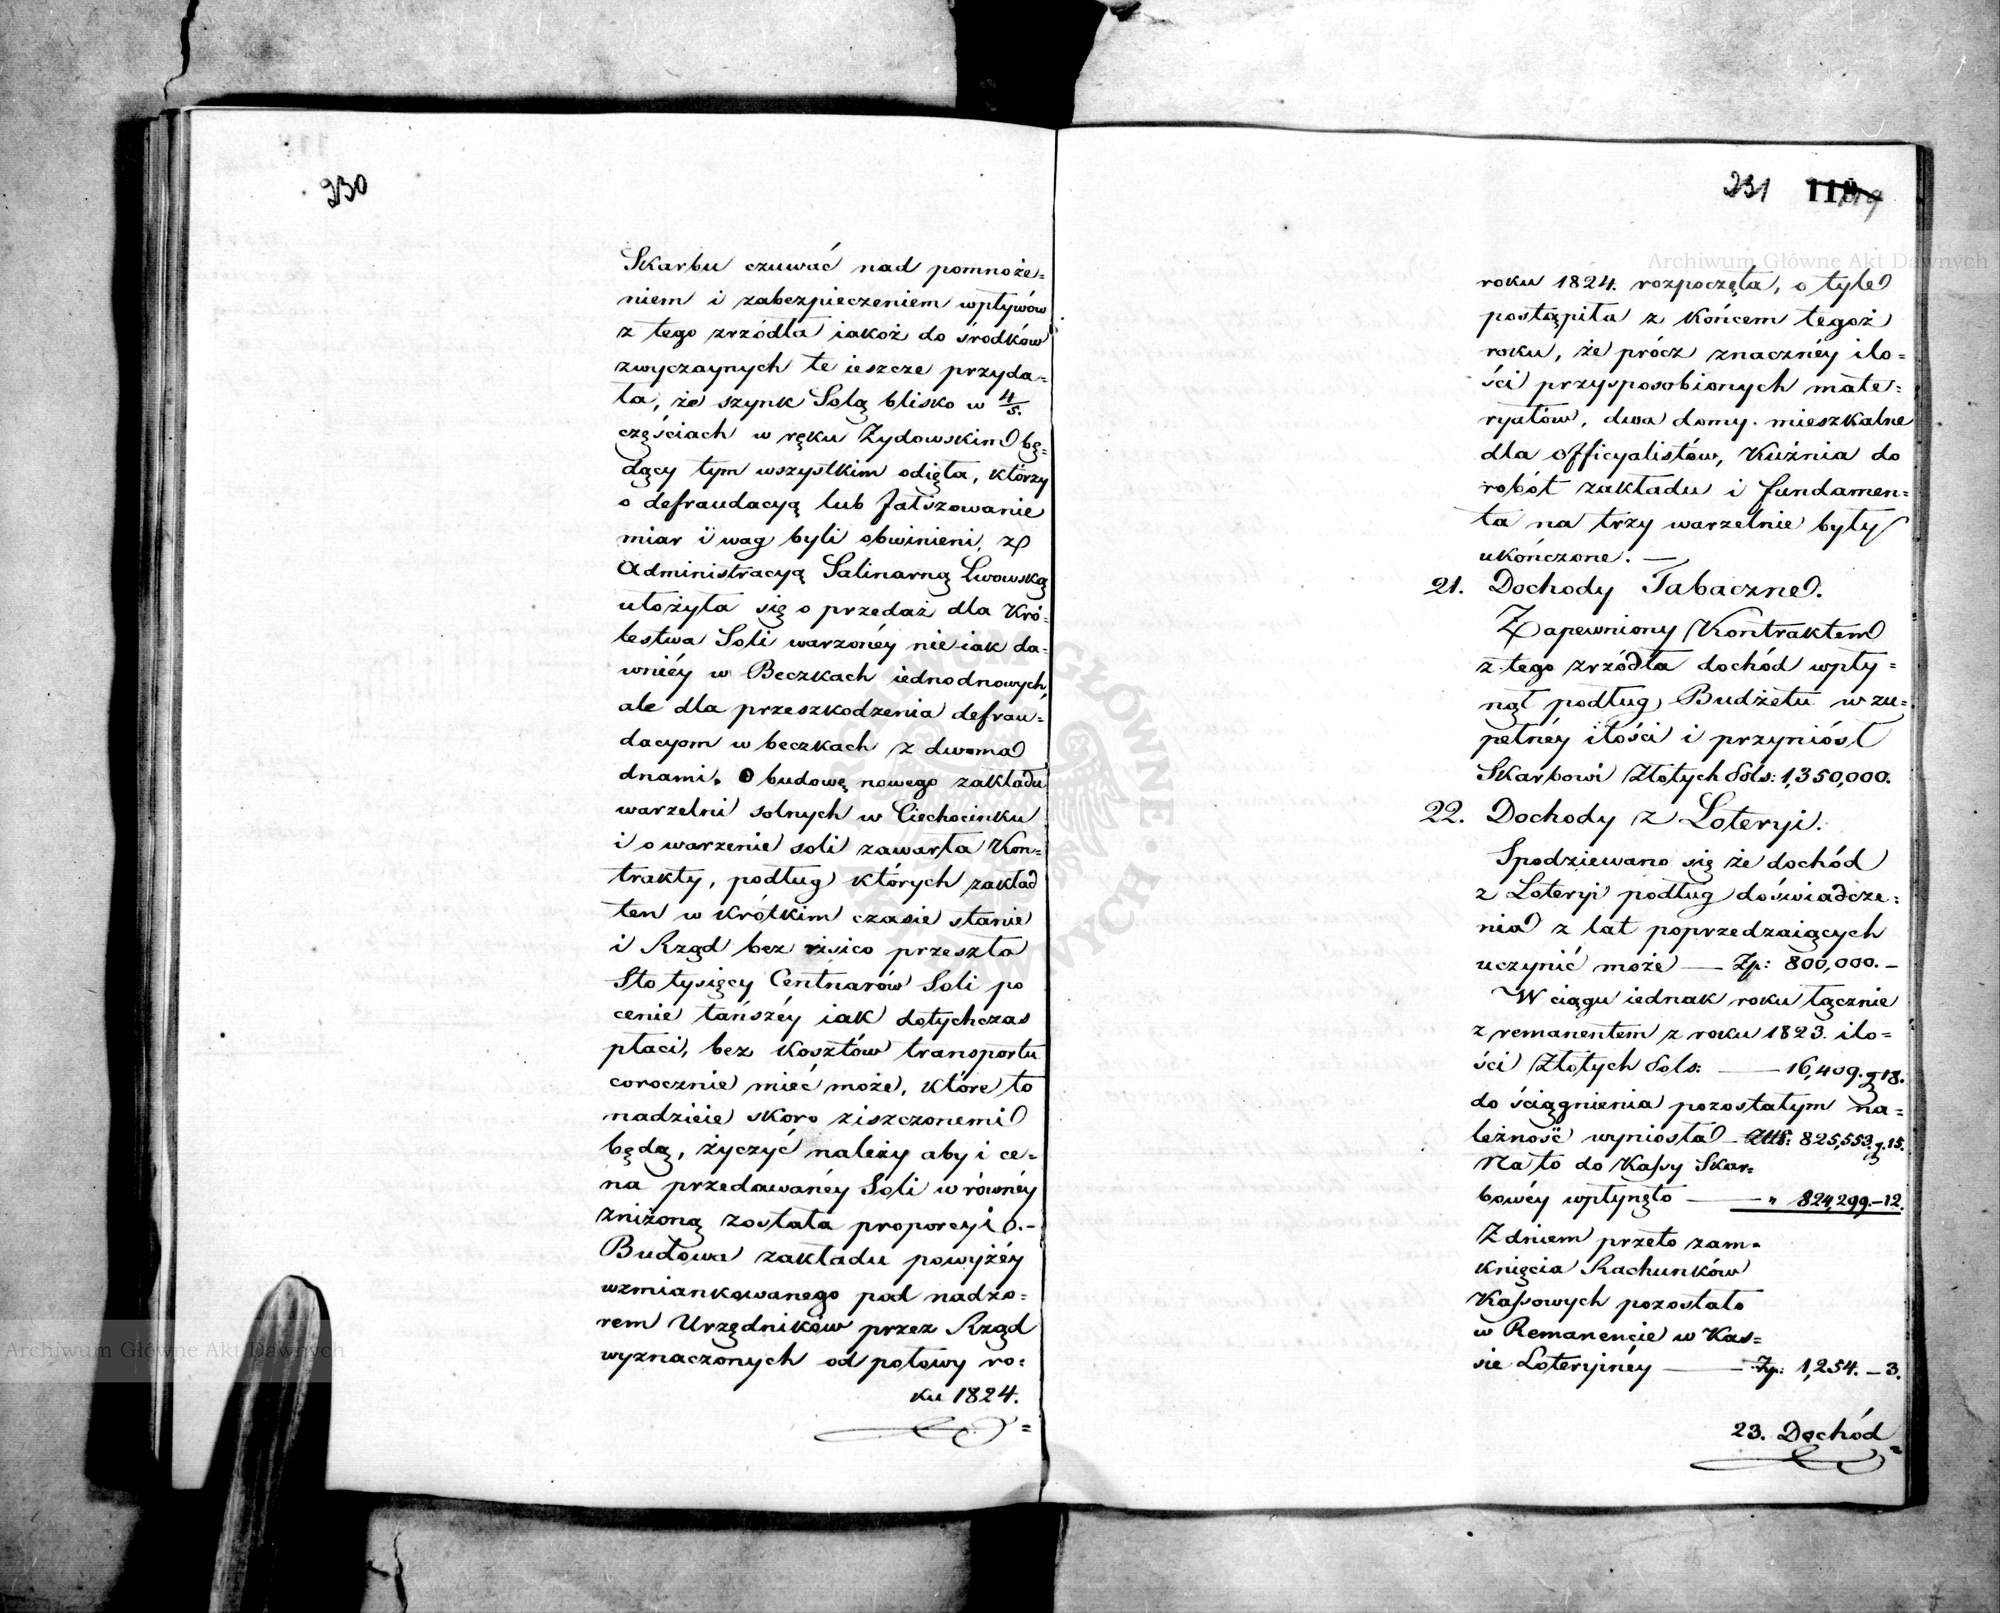 230
Skarbu czuwać nad pomnoże=
niem i zabezpieczeniem wpływów
z tego zrzódła iakoż do środków
zwyczaynych te ieszcze przyda=
ła, że szynk Solą blisko w 4/5.
częściach w ręku Zydowskim bę=
dący tym wszystkim odięła, którzy
o defraudacyą lub fałszowanie
miar i wag byli obwinieni, z
Administracyą Salinarną Lwowską
ułożyła się o przedaż dla Kró=
lestwa Soli warzonéy nie iak da=
wniéy w Beczkach iednodnowych,
ale dla przeszkodzenia defrau=
dacyom w beczkach z dwoma
dnami. O budowę nowego zakładu
warzelni solnych w Ciechocinku
i o warzenie soli zawarła Kon=
trakty, podług których zakład
ten w krótkim czasie stanie
i Rząd bez risico przeszło
Sto tysięcy Centnarów Soli po
cenie tańszéy iak dotychczas
płaci, bez kosztów transportu
corocznie mieć może, które to
nadzieie skoro ziszczonemi
będą, życzyć należy aby i ce=
na przedawanéy Soli w równéy
zniżoną została proporcyi.-
Budowa zakładu powyżéy
wzmiankowanego pod nadzo=
rem Urzędników przez Rząd
wyznaczonych od połowy ro=
ku 1824.
231
Archiwum Główne Akt Dawnych
roku 1824. rozpoczęta, o tyle
postąpiła z końcem tegoż
roku, że prócz znacznéy ilo=
ści przysposobionych mate=
ryałów, dwa domy mieszkalne
dla officyalistów, Kuźnia do
robót zakładu i fundamen=
ta na trzy warzelnie były
ukończone. —
21. Dochody Tabaczne.
Zapewniony Kontraktem
z tego zrzódła dochód wpły=
nął podług Budżetu w zu=
pełnéy ilości i przyniósł
Skarbowi Złotych Pols: 1,350,000.
22. Dochody z Loteryi.
Spodziewano się że dochód
z Loteryi podług doświadcze=
nia z lat poprzedzaiących
uczynić może — Zp: 800,000.-
W ciągu iednak roku łącznie
z remanentem z roku 1823. ilo=
ści Złotych Pols: — 16,409. g 18.
do ściągnienia pozostałym na=
leżność wyniosła — Złp: 825,553. g. 15.
Na to do Kassy Skar=
bowéy wpłynęło — " 824,299.-12.
Z dniem przeto zam=
knięcia Rachunków
Kassowych pozostało
w Remanencie w Kas=
sie Loteryinéy — Zp: 1,254. - 3.
23. Dochód
ARCHIWUM GŁÓWNE AKT DAWNYCH
Archiwum Główne Akt Dawnych